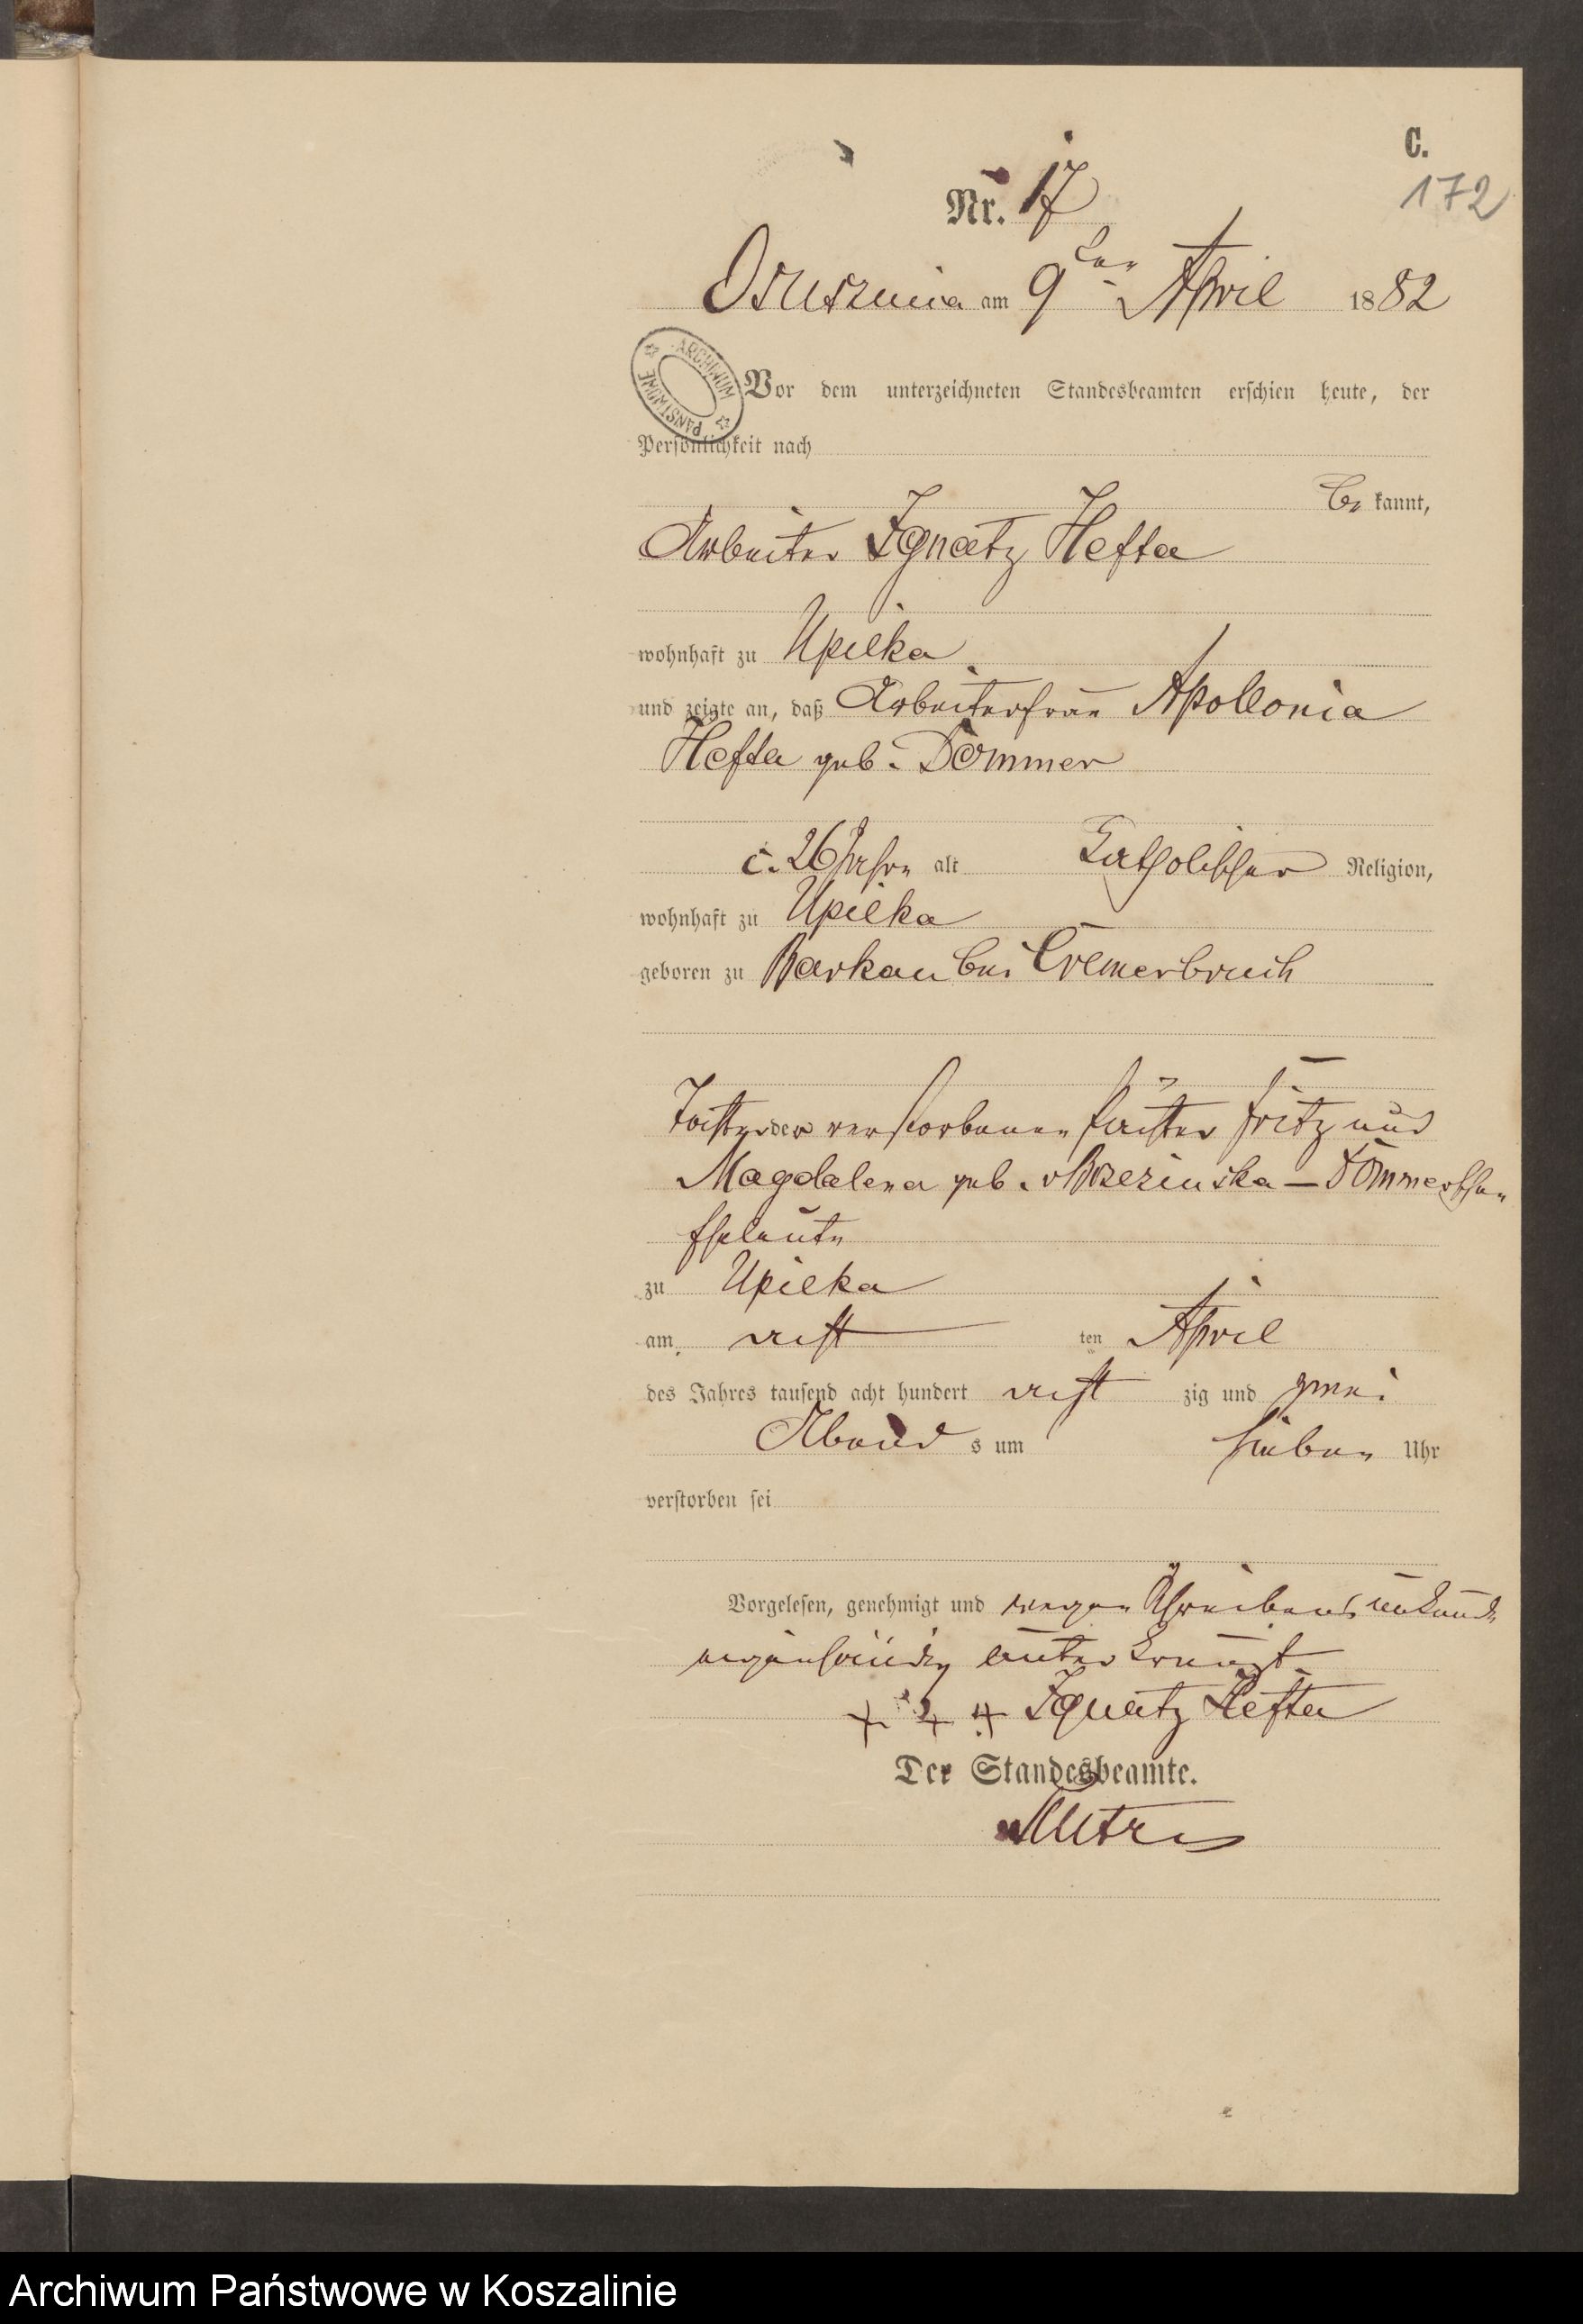 C.
172
Nr. 17
Osusznica am 9ten April 1882
ARCHIWUM PAŃSTWOWE
Vor dem unterzeichneten Standesbeamten erschien heute, der
Persönlichkeit nach
be kannt,
Arbeiter Ignatz Hefta
wohnhaft zu Upilka
und zeigte an, daß Arbeiterfrau Apollonia
Hefta geb. Dommer
c. 26 Jahre alt Katholischer Religion,
wohnhaft zu Upilka
geboren zu Barkau bei Cremerbruch
Tochter der verstorbenen Pächter Fritz und
Magdalena geb. v Brzezinska – Dommerschen
Eheleute
zu Upilka
am acht ten April
des Jahres tausend acht hundert acht zig und zwei
Abend s um sieben Uhr
verstorben sei
Vorgelesen, genehmigt und wegen Schreibensunkunde
eigenhändig unterkreuzt
+ + + Ignatz Hefta
Der Standesbeamte.
Archiwum Państwowe w Koszalinie